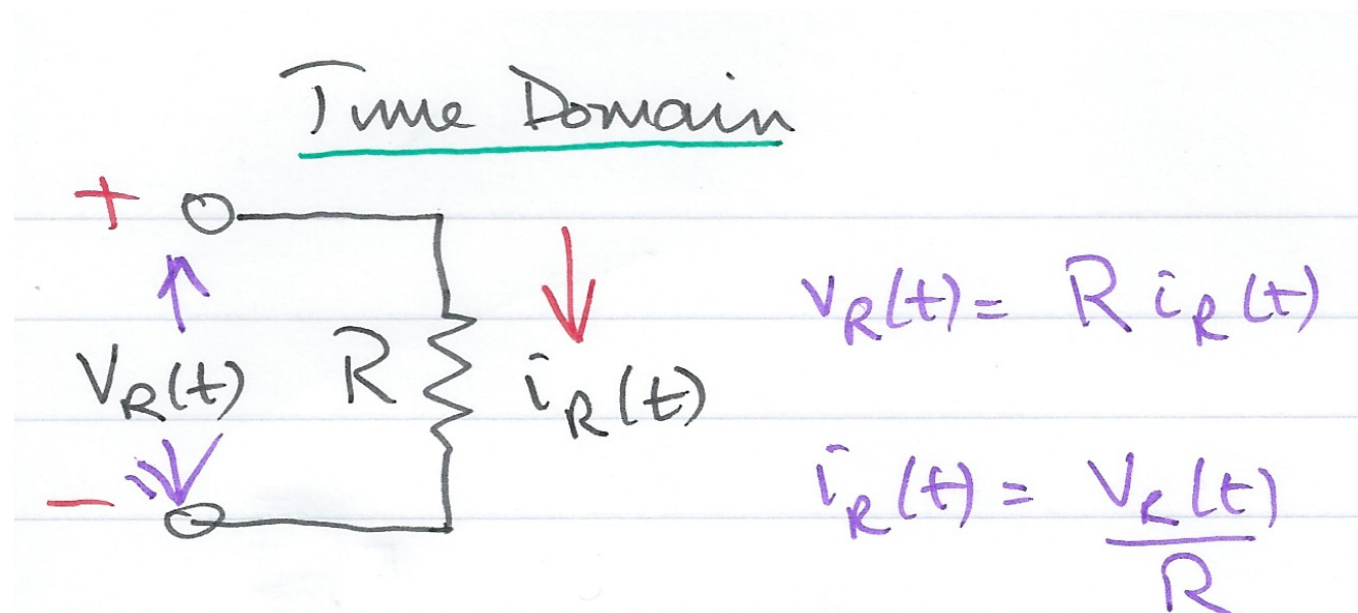 Time Domain
+
V_R(t) R i_R(t) v_R(t) = R i_R(t)
−
i_R(t) = V_R(t) / R